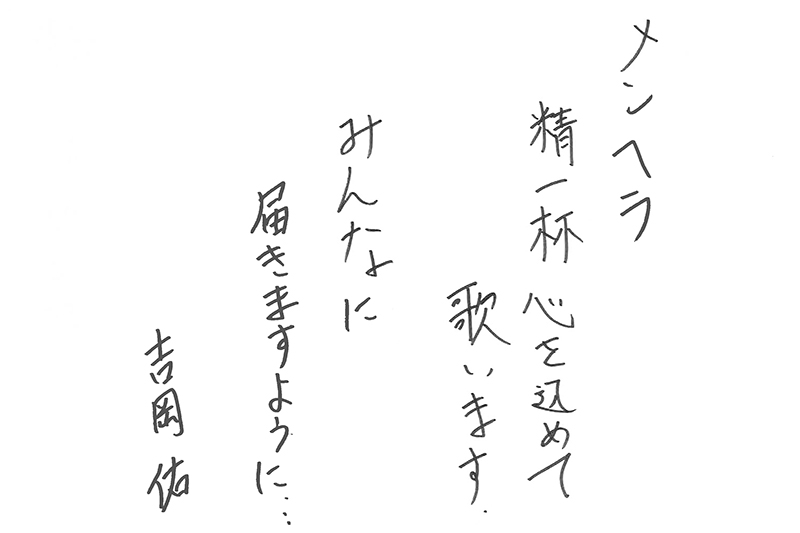 メンヘラ
精一杯 心を込めて
歌います.
みんなに
届きますように…
吉岡 佑